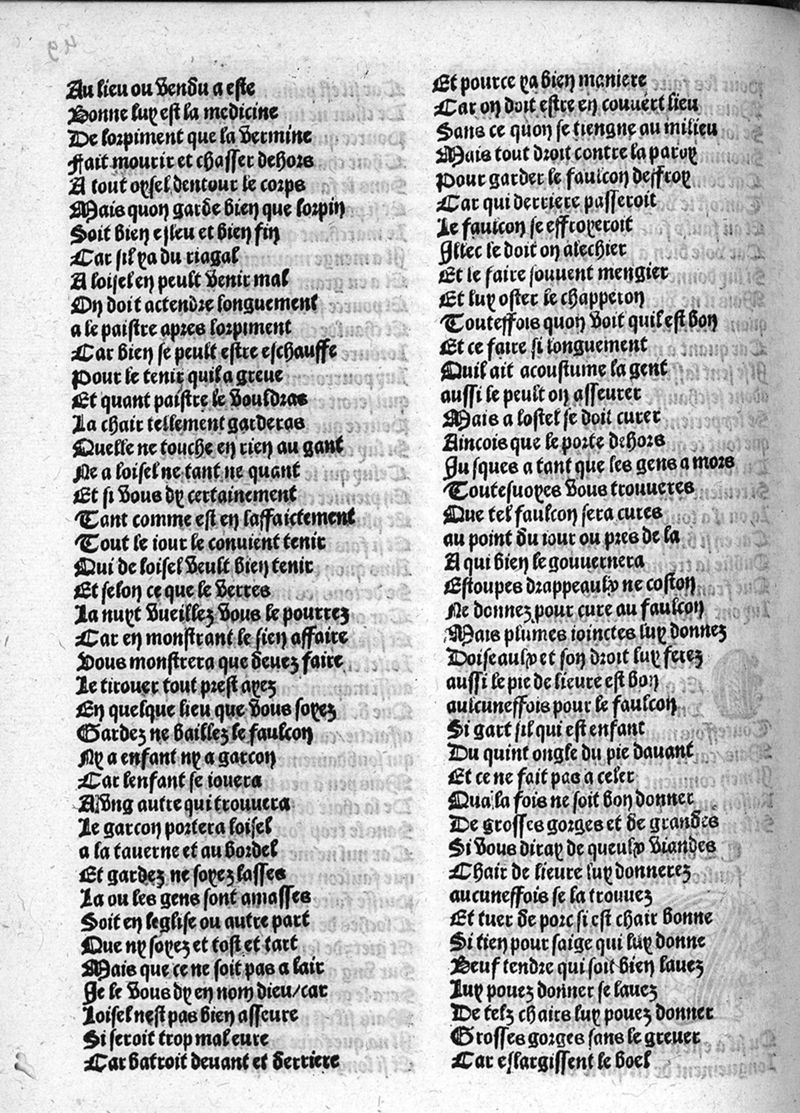 49
Au lieu ou vendu a este
Bonne luy est la medicine
De lorpiment que la vermine
Fait mourir et chasser dehors
A tout oysel dentour le corps
Mais quon garde bien que lorpin
Soit bien esleu et bien fin
Car sil ya du riagal
A loisel en peult venir mal
On doit actendre longuement
a le paistre apres lorpiment
Car bien se peult estre eschauffe
Pour le tenir quil a greue
Et quant paistre le vouldras
La chair tellement garderas
Quelle ne touche en rien au gant
Ne a loisel ne tant ne quant
Et si vous dy certainement
Tant comme est en laffaictement
Tout le iour le conuient tenir
Qui de loisel veult bien tenir
Et selon ce que le verres
La nuyt vueillez vous le pourrez
Car en monstrant le sien affaire
Vous monstrera que deuez faire
Le tirouer tout prest ayez
En quelque lieu que vous soyez
Gardez ne baillez le faulcon
Ny a enfant ny a garcon
Car lenfant se iouera
A vng autre qui trouuera
Le garcon portera loisel
a la tauerne et au bordel
Et gardez ne soyez lasses
La ou les gens sont amasses
Soit en leglise ou autre part
Que ny soyez et tost et tart
Mais que ce ne soit pas a lair
Je le vous dy en nom dieu/car
Loisel nest pas bien asseure
Si seroit trop mal eure
Car batroit deuant et derriere
Et pource ya bien maniere
Car on doit estre en couuert lieu
Sans ce quon se tiengne au milieu
Mais tout droit contre la paroy
Pour garder le faulcon deffroy
Car qui derriere passeroit
Le faulcon se effroyeroit
Illec le doit on alechier
Et le faire souuent mengier
Et luy oster le chapperon
Touteffois quon voit quil est bon
Et ce faire si longuement
Quil ait acoustume la gent
aussi le peult on asseurer
Mais a lostel se doit curer
Aincois que le porte dehors
Jusques a tant que les gens a mors
Toutesuoyes vous trouueres
Que tel faulcon sera cures
au point du iour ou pres de la
A qui bien le gouuernera
Estoupes drappeaulx ne coston
Ne donnez pour cure au faulcon
Mais plumes ioinctes luy donnez
Doiseaulx et son droit luy ferez
aussi le pie de lieure est bon
aulcuneffois pour le faulcon
Si gart sil qui est enfant
Du quint ongle du pie dauant
Et ce ne fait pas a celer
Qua la fois ne soit bon donner
De grosses gorges et de grandes
Si vous diray de queulx viandes
Chair de lieure luy donnerez
aucuneffois se la trouuez
Et tuer de porc si est chair bonne
Si tien pour saige qui luy donne
Beuf tendre qui soit bien lauez
Luy pouez donner se lauez
De telz chairs luy pouez donner
Grosses gorges sans le greuer
Car eslargissent le boel